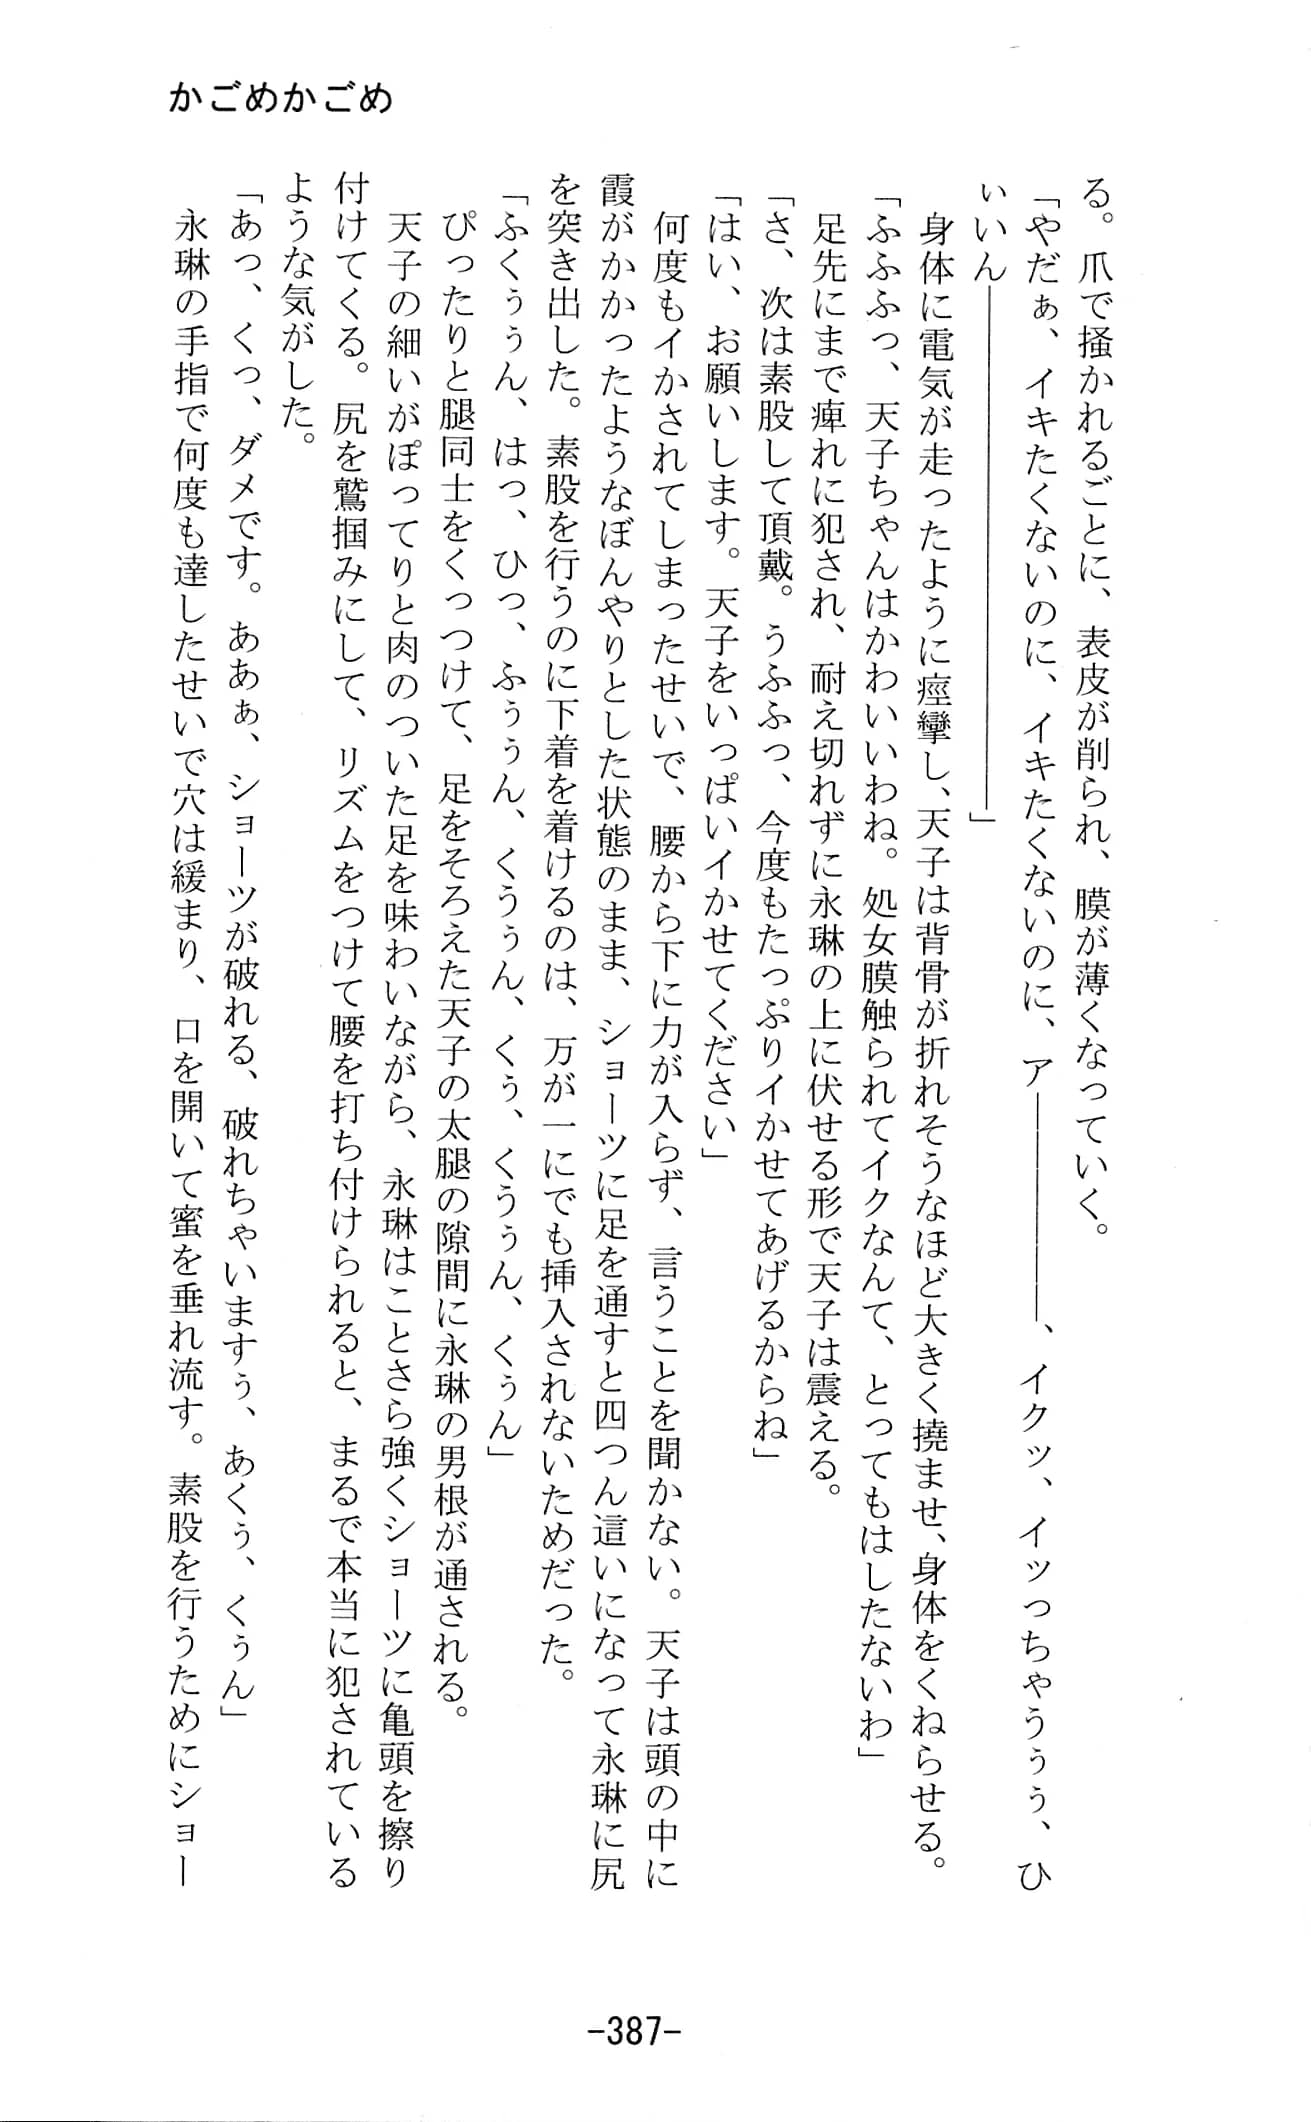 かごめかごめ
る。爪で掻かれるごとに、表皮が削られ、膜が薄くなっていく。
「やだぁ、イキたくないのに、イキたくないのに、ア――――――、イクッ、イッっちゃうぅぅ、ひ
ぃいん――――――――――――――」
身体に電気が走ったように痙攣し、天子は背骨が折れそうなほど大きく撓ませ、身体をくねらせる。
「ふふふっ、天子ちゃんはかわいいわね。処女膜触られてイクなんて、とってもはしたないわ」
足先にまで痺れに犯され、耐え切れずに永琳の上に伏せる形で天子は震える。
「さ、次は素股して頂戴。うふふっ、今度もたっぷりイかせてあげるからね」
「はい、お願いします。天子をいっぱいイかせてください」
何度もイかされてしまったせいで、腰から下に力が入らず、言うことを聞かない。天子は頭の中に
霞がかかったようなぼんやりとした状態のまま、ショーツに足を通すと四つん這いになって永琳に尻
を突き出した。素股を行うのに下着を着けるのは、万が一にでも挿入されないためだった。
「ふくぅぅん、はっ、ひっ、ふぅぅん、くうぅん、くぅ、くうぅん、くぅん」
ぴったりと腿同士をくっつけて、足をそろえた天子の太腿の隙間に永琳の男根が通される。
天子の細いがぽってりと肉のついた足を味わいながら、永琳はことさら強くショーツに亀頭を擦り
付けてくる。尻を鷲掴みにして、リズムをつけて腰を打ち付けられると、まるで本当に犯されている
ような気がした。
「あっ、くっ、ダメです。ああぁ、ショーツが破れる、破れちゃいますぅ、あくぅ、くぅん」
永琳の手指で何度も達したせいで穴は緩まり、口を開いて蜜を垂れ流す。素股を行うためにショー
-387-